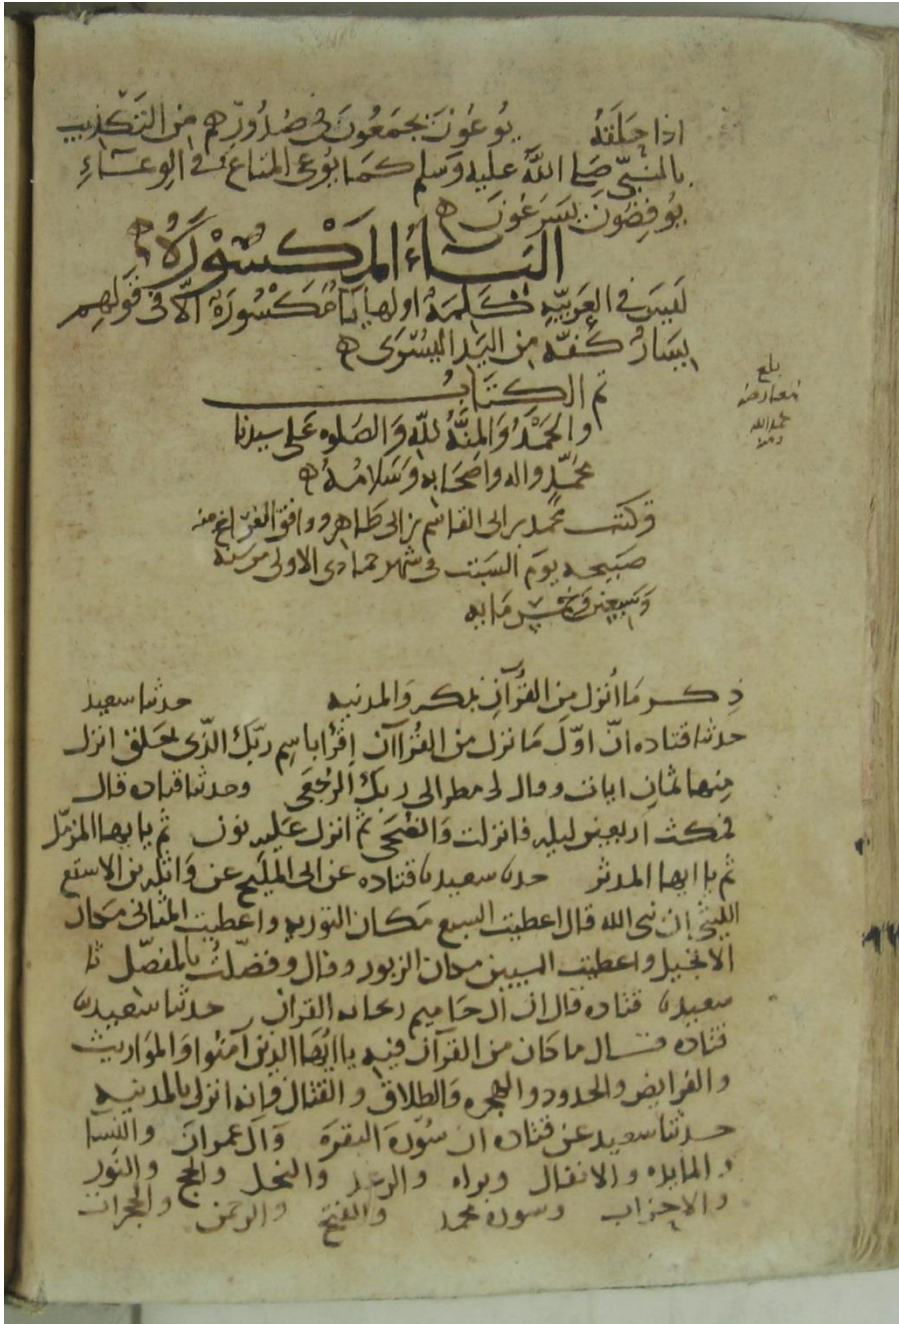 اذا جعلته يوعون يجمعون في صدورهم من التكذيب
بالنبي صلى الله عليه وسلم كما يوعى المتاع في الوعاء
يوفضون يسرعون ه
الياء المكسورة ه
ليس في العربيه كلمة اولها ياء مكسورة الا في قولهم
يسار كفه من اليد اليسرى ه
تم الكتاب
والحمد والمنة لله والصلوه على سيدنا
محمد واله واصحابه وسلامه ه
وكتب محمد بن ابي القاسم بن ابي طاهر ووافق الفراغ منه
صبيحه يوم السبت في شهر جمادى الاولى من سنة
وسبعين وخمس مايه
بلغ
معارضه
بحمد الله
ذكر ما انزل من القرآن بمكه والمدنيه حدثنا سعيد
حدثنا قتاده ان اول ما نزل من القرآن اقرأ باسم ربك الذي خلق انزل
منها ثمان ايات وقال لي مطر الى ربك الرجعى وحدثنا قتاده قال
فمكث اربعين ليله فانزلت والضحى ثم انزل عليه نون ثم يا ايها المزمل
ثم يا ايها المدثر حدثنا سعيد نا قتاده عن ابي المليح عن واثله بن الاسقع
الليثي ان نبي الله قال اعطيت السبع مكان التوريه واعطيت المثاني مكان
الانجيل واعطيت الميين مكان الزبور وقال وفضلت بالمفصل نا
سعيد نا قتاده قال ان ال حاميم ريحانه القران حدثنا سعيد نا
قتاده قال ما كان من القرآن فيه يا ايها الذين آمنوا والمواريث
والفرايض والحدود والهجره والطلاق والقتال فانه انزل بالمدنيه
حدثنا سعيد عن قتاده ان سورة البقرة وآل عمران والنسا
والمايده والانفال وبراه والرعد والنحل والحج والنور
والاحزاب وسوره محمد والفتح والرحمن والحجرات